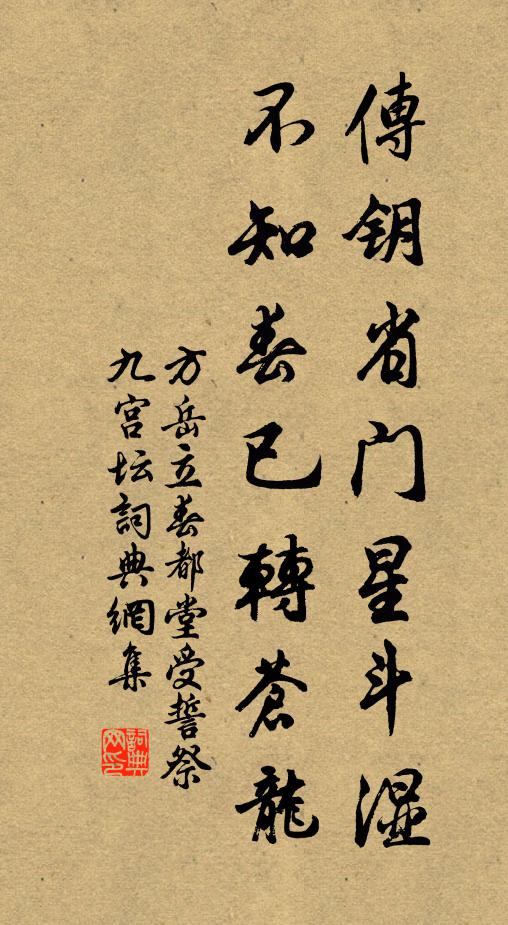 傳钥省门星斗湿
不知春已轉蒼龍
方岳立春都堂受誓祭
九宫坛詞典網集
詞典网印